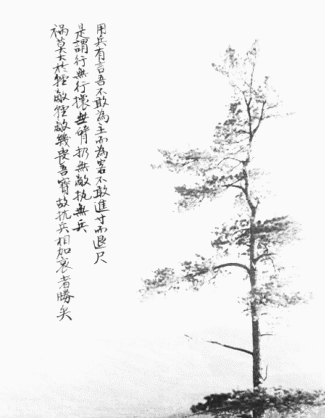 用兵有言吾不敢為主而為客不敢進寸而退尺
是謂行無行攘無臂扔無敵執無兵
禍莫大於輕敵輕敵幾喪吾寶故抗兵相加哀者勝矣